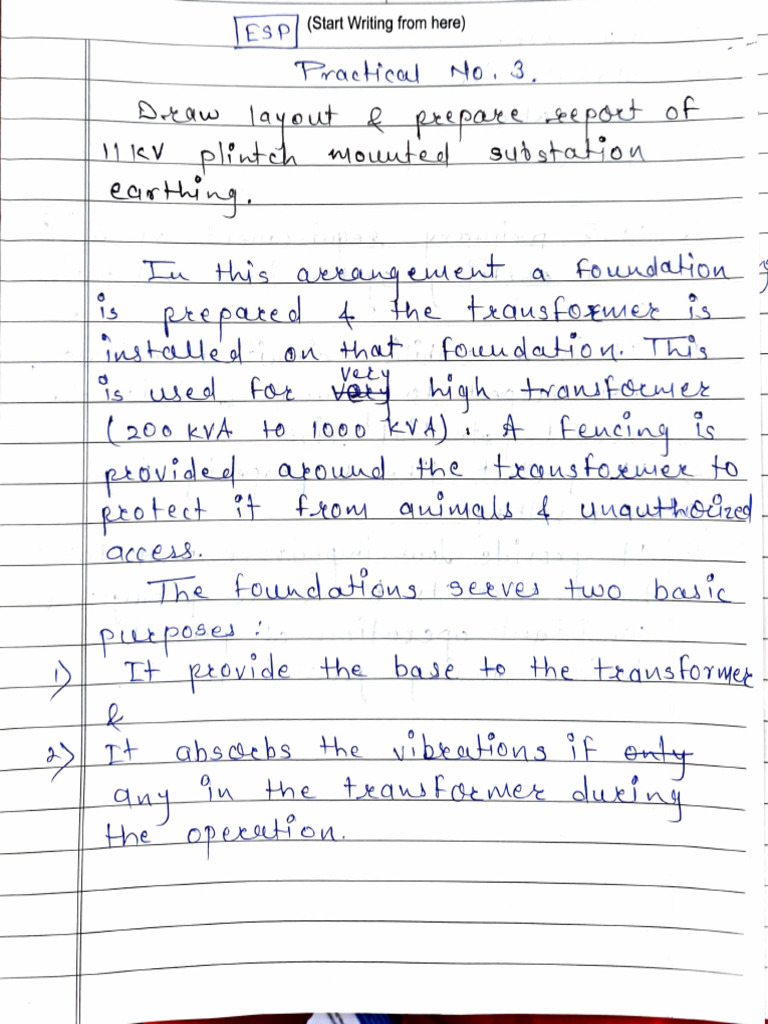 ESP (Start Writing from here)
Practical No. 3.
Draw layout & prepare report of
11 KV plintch mounted substation
earthing.
In this arrangement a foundation
is prepared & the transformer is
installed on that foundation. This
very
is used for vary high transformer
(200 KVA to 1000 KVA). A fencing is
provided around the transformer to
protect it from animals & unauthorized
access.
The foundations serves two basic
purposes :
1) It provide the base to the transformer
&
2) It absorbs the vibrations if only
any in the transformer during
the operation.